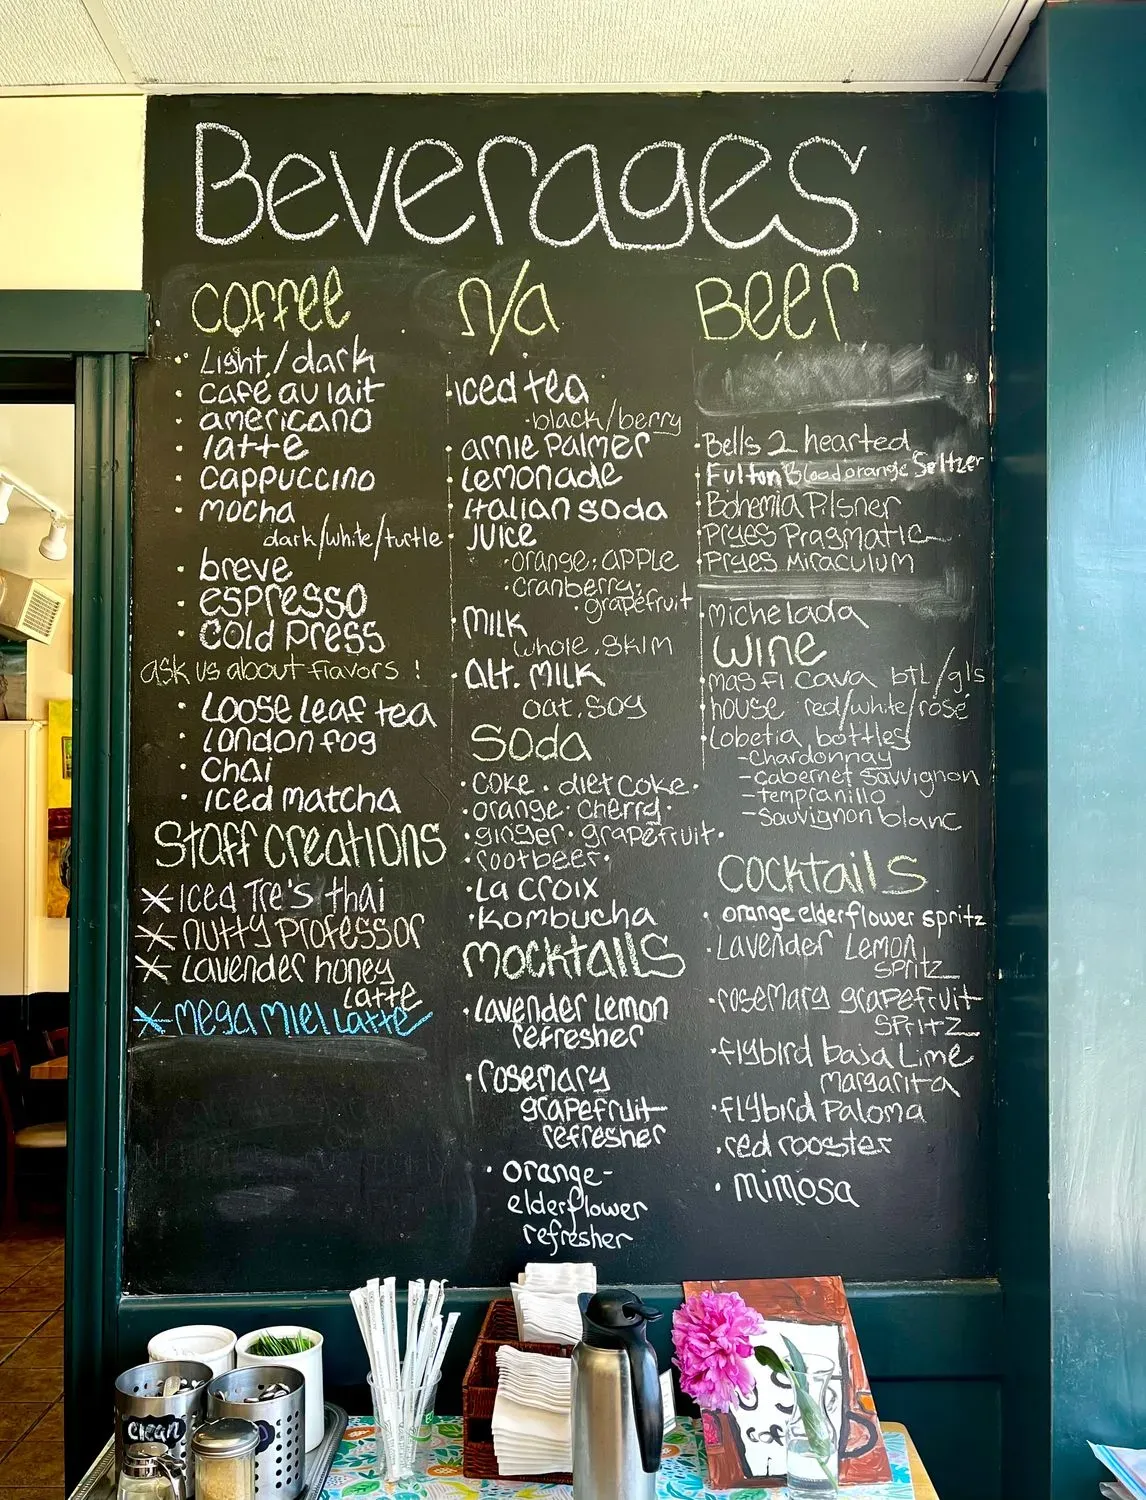 Beverages
coffee
• Light / dark
• café au lait
• americano
• latte
• cappuccino
• mocha
dark/white/turtle
• breve
• espresso
• cold press
ask us about flavors !
• Loose Leaf tea
• London fog
• chai
• iced matcha
Staff creations
* iced Tre's thai
* nutty Professor
* Lavender honey
Latte
* mega miel Latte
n/a
• iced tea
• black/berry
• arnie Palmer
• Lemonade
• italian soda
• Juice
• orange • apple
• cranberry •
• grapefruit
• milk
whole, skim
• alt. milk
oat, soy
Soda
• coke • diet coke •
• orange • cherry •
• ginger • grapefruit •
• rootbeer •
• La croix
• kombucha
mocktails
• Lavender Lemon
refresher
• rosemary
grapefruit
refresher
• orange-
elderflower
refresher
Beer
• Bells 2 hearted
• Fulton Blood orange Seltzer
• Bohemia Pilsner
• Pryes Pragmatic
• Pryes Miraculum
• michelada
wine
• mas fi cava btl/gls
• house red/white/rosé
• Lobetia bottles
- chardonnay
- cabernet sauvignon
- tempranillo
- sauvignon blanc
cocktails
• orange elderflower spritz
• Lavender Lemon
spritz
• rosemary grapefruit
spritz
• flybird baja Lime
margarita
• flybird Paloma
• red rooster
• mimosa
clean